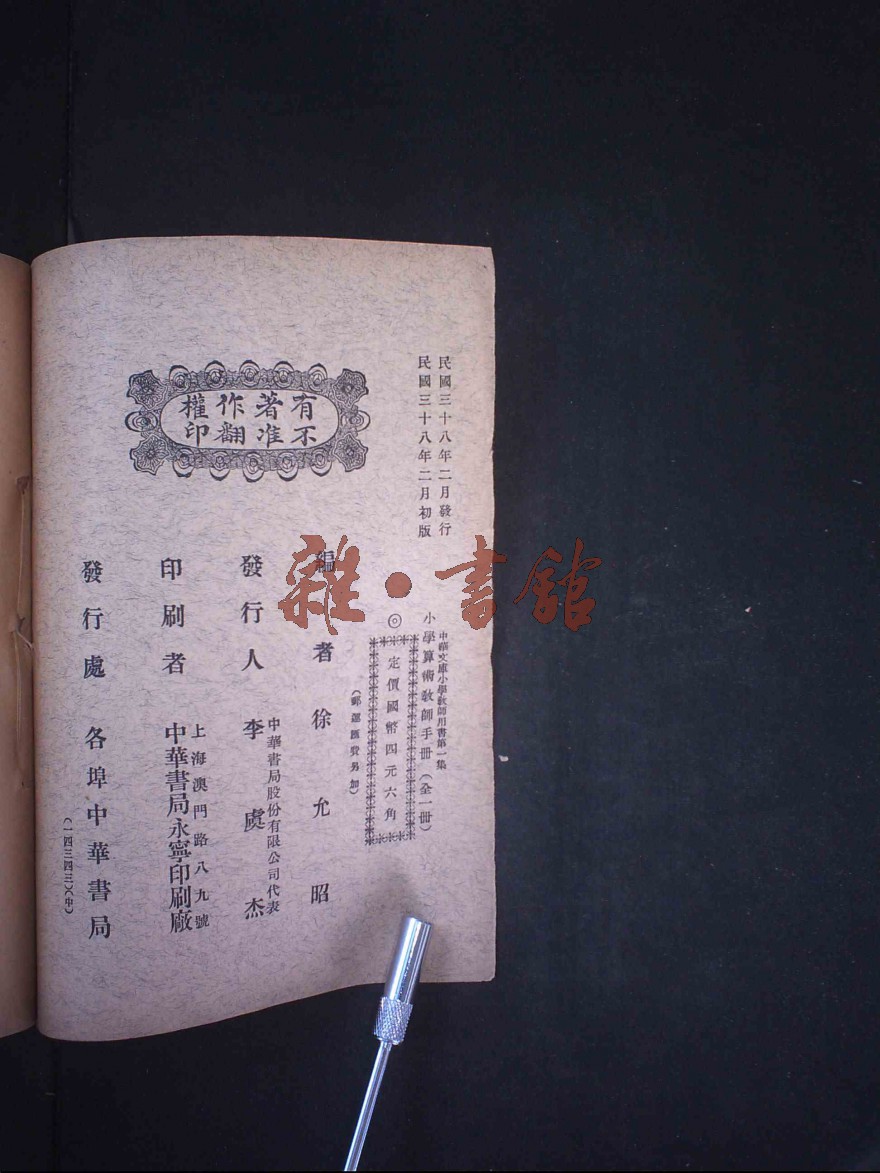 民國三十八年二月發行
民國三十八年二月初版
中華文庫小學教師用書第一集
小學算術教師手冊（全一冊）
◎定價國幣四元六角
（郵運匯費另加）
編者 徐允昭
發行人 李虞杰
中華書局股份有限公司代表
印刷者 中華書局永寧印刷廠
上海澳門路八九號
發行處 各埠中華書局
有著作權
不准翻印
雜·書館